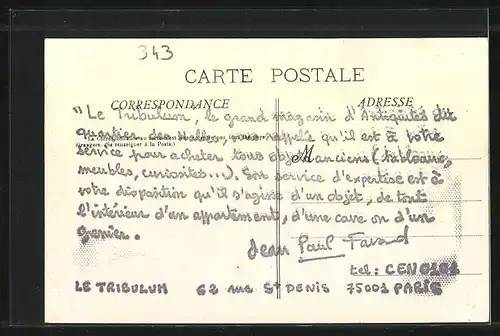 343
CARTE POSTALE
CORRESPONDANCE
ADRESSE
"Le Tribulum, le grand magasin d'Antiquités dit
quartier des Halles, vous rappelle qu'il est à votre
étrangers. (Se renseigner à la Poste.)
service pour acheter tous objets anciens (tableaux,
M
meubles, curiosités...). Son service d'expertise est à
votre disposition qu'il s'agisse d'un objet, de tout
l'intérieur d'un appartement, d'une cave ou d'un
Grenier.
Jean Paul Favand
tel: CEN 0101
LE TRIBULUM 62 rue St DENIS 75001 PARIS